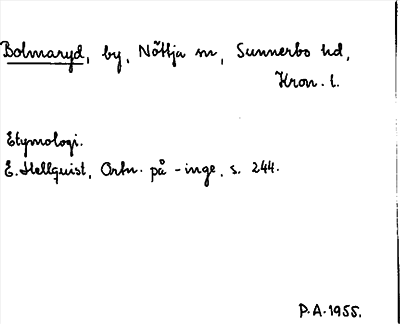 Bolmaryd, by, Nöttja sn, Sunnerbo hd,
Kron. l.
Etymologi.
E. Hellquist, Ortn. på -inge, s. 244.
P.A. 1955.